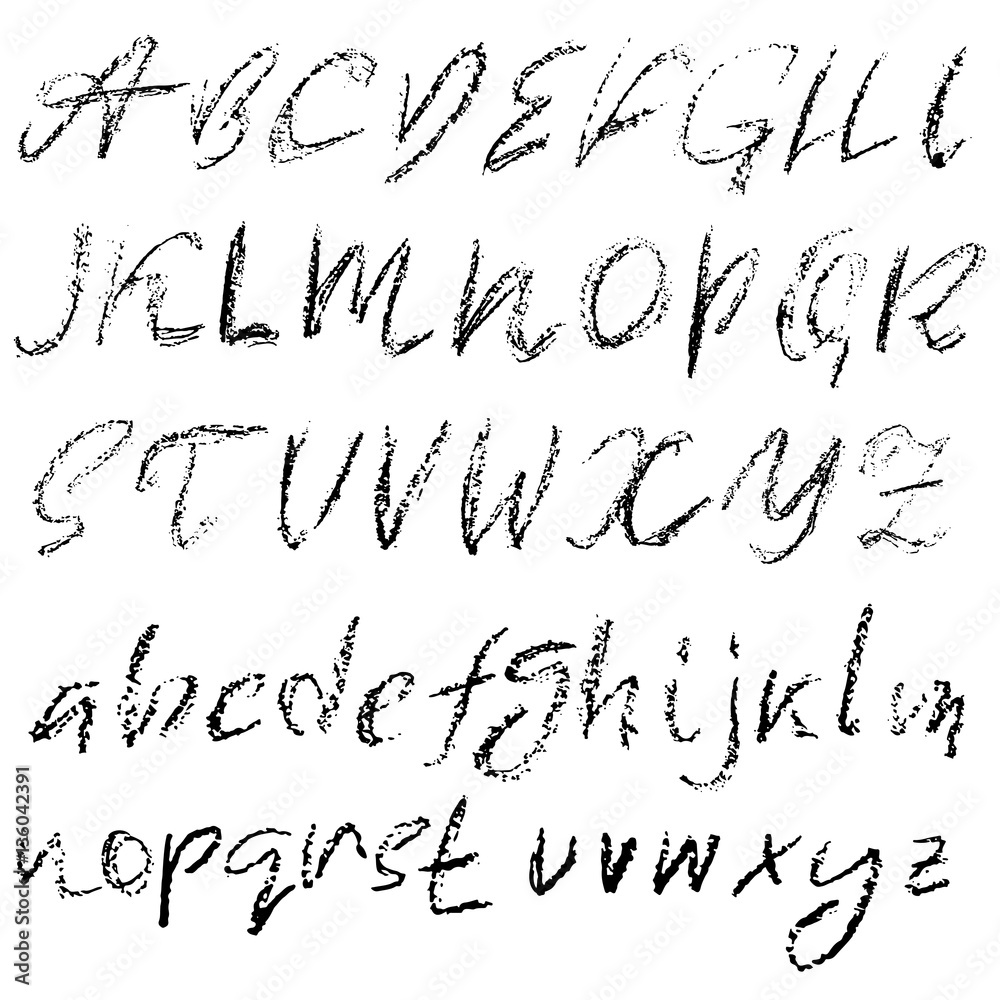 A B C D E F G H I
J K L M N O P Q R
S T U V W X Y Z
a b c d e f g h i j k l m
n o p q r s t u v w x y z
Adobe Stock | #136042391